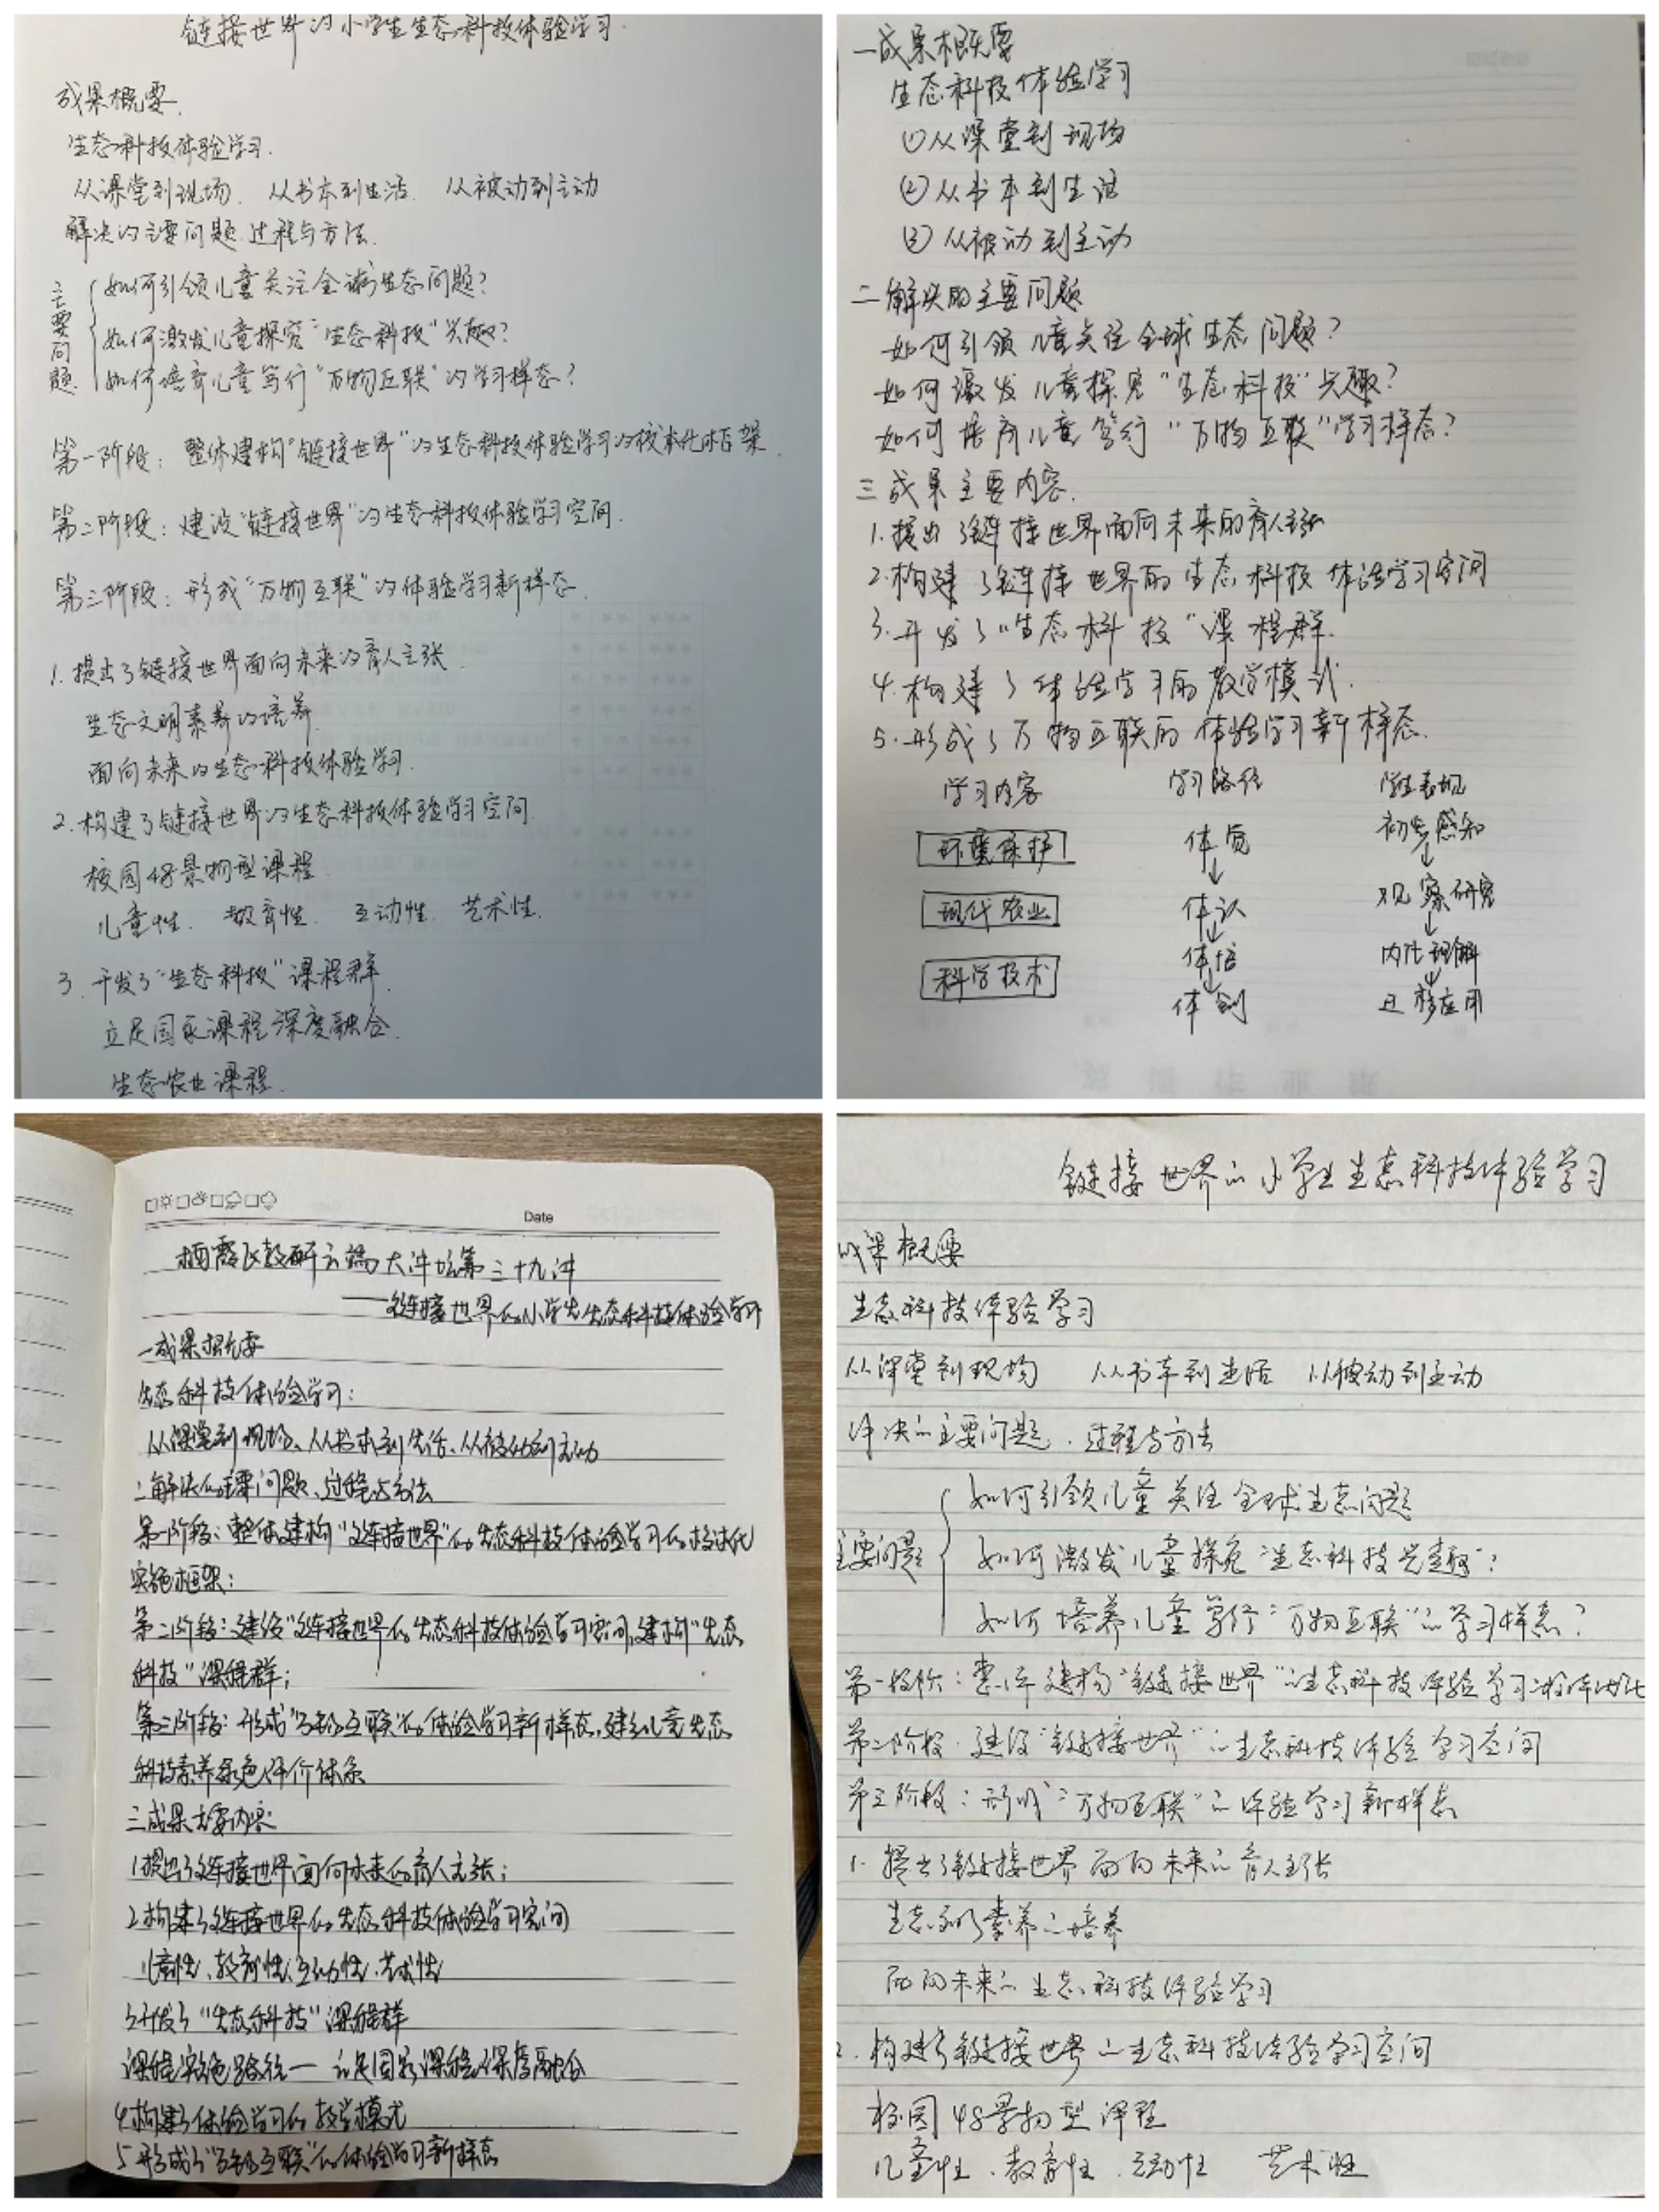 链接世界的小学生生态科技体验学习.
成果概要.
生态科技体验学习.
从课堂到现场. 从书本到生活. 从被动到主动
解决的主要问题.过程与方法.
主要问题
如何引领儿童关注全球生态问题?
如何激发儿童探究"生态科技"兴趣?
如何培育儿童笃行"万物互联"的学习样态?
第一阶段: 整体建构"链接世界"的生态科技体验学习的校本化框架.
第二阶段: 建设"链接世界"的生态科技体验学习空间.
第三阶段: 形成"万物互联"的体验学习新样态.
1.提出了链接世界面向未来的育人主张.
生态文明素养的培养.
面向未来的生态科技体验学习.
2.构建了链接世界的生态科技体验学习空间.
校园48景物型课程.
儿童性. 教育性. 互动性. 艺术性.
3.开发了"生态科技"课程群.
立足国家课程深度融合.
生态农业课程.
一成果概要
生态科技体验学习
①从课堂到现场
②从书本到生活
③从被动到主动
二解决的主要问题
如何引领儿童关注全球生态问题?
如何激发儿童探究"生态科技"兴趣?
如何培育儿童笃行"万物互联"学习样态?
三成果主要内容.
1.提出了链接世界面向未来的育人主张
2.构建了链接世界的生态科技体验学习空间
3.开发了"生态科技"课程群.
4.构建了体验学习的教学模式.
5.形成了万物互联的体验学习新样态.
学习内容 学习路径 学生表现
环境保护 体觉 初步感知
现代农业 体认 观察研究
科学技术 体悟 内化理解
体创 迁移应用
Date
栖霞区教研云端大讲坛第三十九讲
——链接世界的小学生生态科技体验学习
一成果概要
生态科技体验学习:
从课堂到现场、从书本到生活、从被动到主动
二解决的主要问题、过程与方法
第一阶段:整体建构"链接世界"的生态科技体验学习的校本化
实施框架;
第二阶段:建设"链接世界的生态科技体验学习空间,建构"生态
科技"课程群;
第三阶段:形成"万物互联"的体验学习新样态,建立儿童生态
科技素养绿色评价体系
三成果主要内容
1提出了链接世界面向未来的育人主张;
2构建了链接世界的生态科技体验学习空间
儿童性、教育性、互动性、艺术性
3开发了"生态科技"课程群
课程实施路径— 立足国家课程深度融合
4构建了体验学习的教学模式
5形成了"万物互联"的体验学习新样态
链接世界的小学生生态科技体验学习
成果概要
生态科技体验学习
从课堂到现场 从书本到生活 从被动到主动
解决的主要问题.过程与方法
主要问题
如何引领儿童关注全球生态问题
如何激发儿童探究"生态科技兴趣"?
如何培养儿童笃行"万物互联"的学习样态?
第一阶段:整体建构"链接世界"的生态科技体验学习的校本化
第二阶段.建设"链接世界"的生态科技体验学习空间
第三阶段:形成"万物互联"的体验学习新样态
1.提出了链接世界面向未来的育人主张
生态文明素养的培养
面向未来的生态科技体验学习
2.构建了链接世界的生态科技体验学习空间
校园48景物型课程
儿童性.教育性.互动性 艺术性